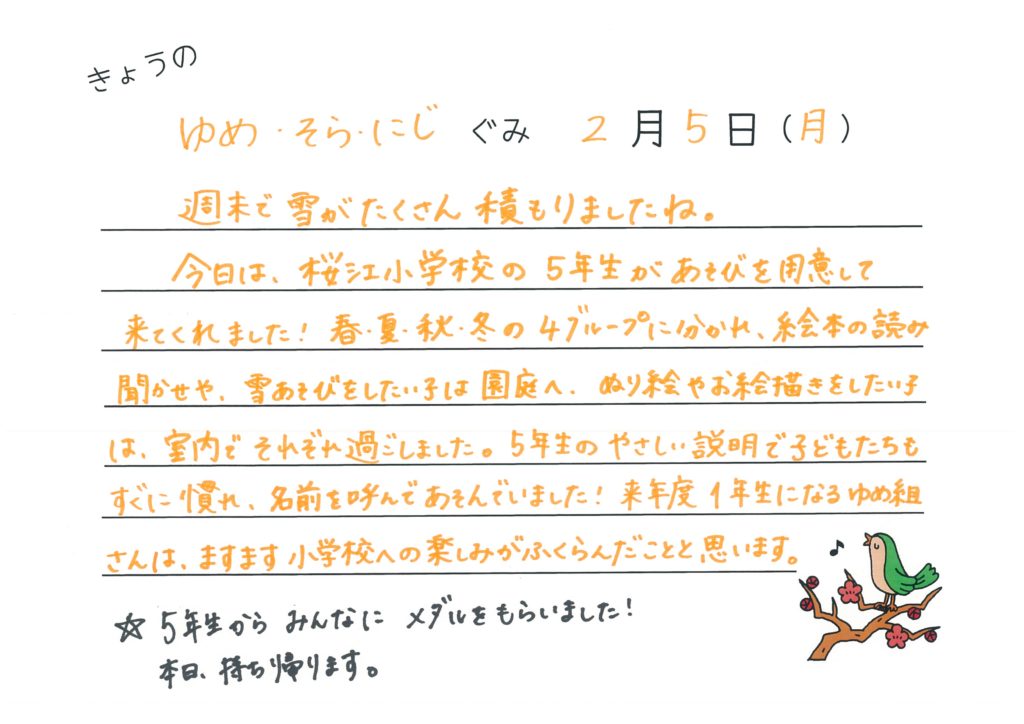 きょうの
ゆめ・そら・にじ ぐみ 2月5日(月)
週末で雪がたくさん積もりましたね。
今日は、桜江小学校の5年生があそびを用意して
来てくれました!春・夏・秋・冬の4グループに分かれ、絵本の読み
聞かせや、雪あそびをしたい子は園庭へ、ぬり絵やお絵描きをしたい子
は、室内でそれぞれ過ごしました。5年生のやさしい説明で子どもたちも
すぐに慣れ、名前を呼んであそんでいました!来年度1年生になるゆめ組
さんは、ますます小学校への楽しみがふくらんだことと思います。
☆5年生からみんなにメダルをもらいました!
本日、持ち帰ります。